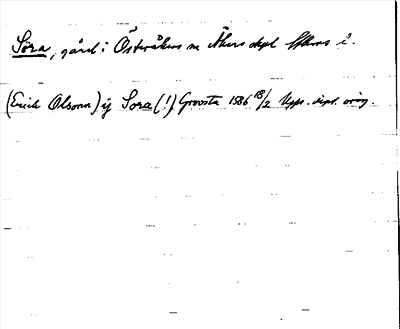 Sora, gård i Österåkers sn Åkers skpl Sthms l.
(Erich Olsonn) ij Sora (!), Groosta 1586 18/2 Upps. dipl. orig.